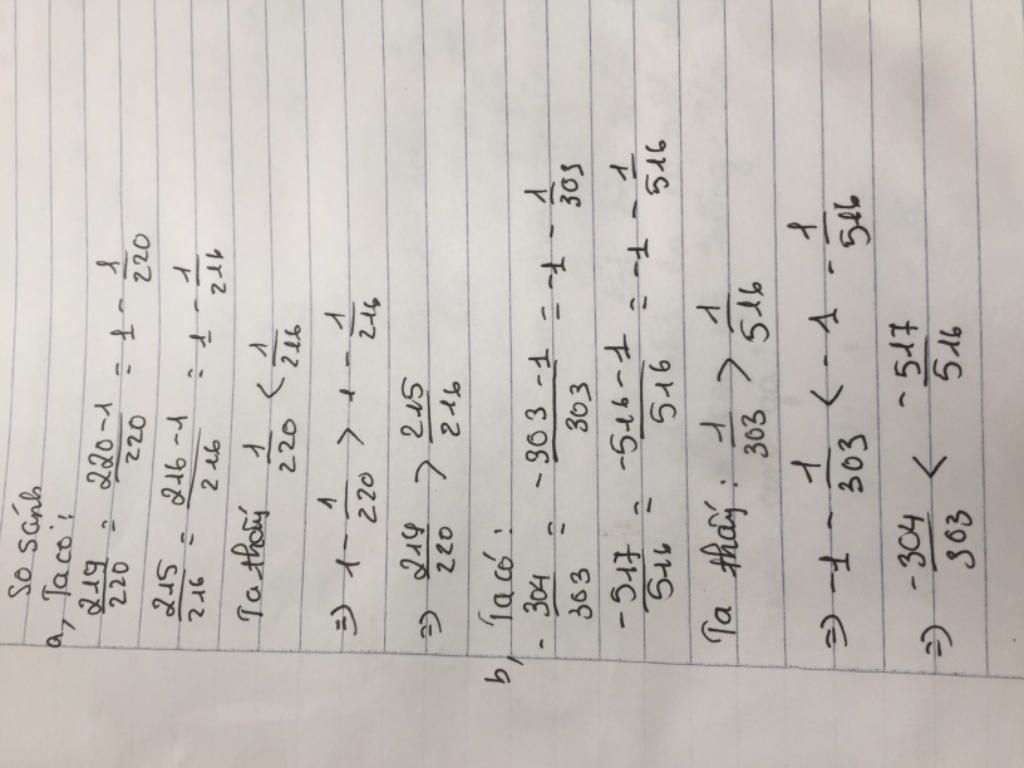 So sánh
a, Ta có:
219/220 = 220-1/220 = 1 - 1/220
215/216 = 216-1/216 = 1 - 1/216
Ta thấy 1/220 < 1/216
=> 1 - 1/220 > 1 - 1/216
=> 219/220 > 215/216
b, Ta có:
-304/303 = -303-1/303 = -1 - 1/303
-517/516 = -516-1/516 = -1 - 1/516
Ta thấy: 1/303 > 1/516
=> -1 - 1/303 < -1 - 1/516
=> -304/303 < -517/516